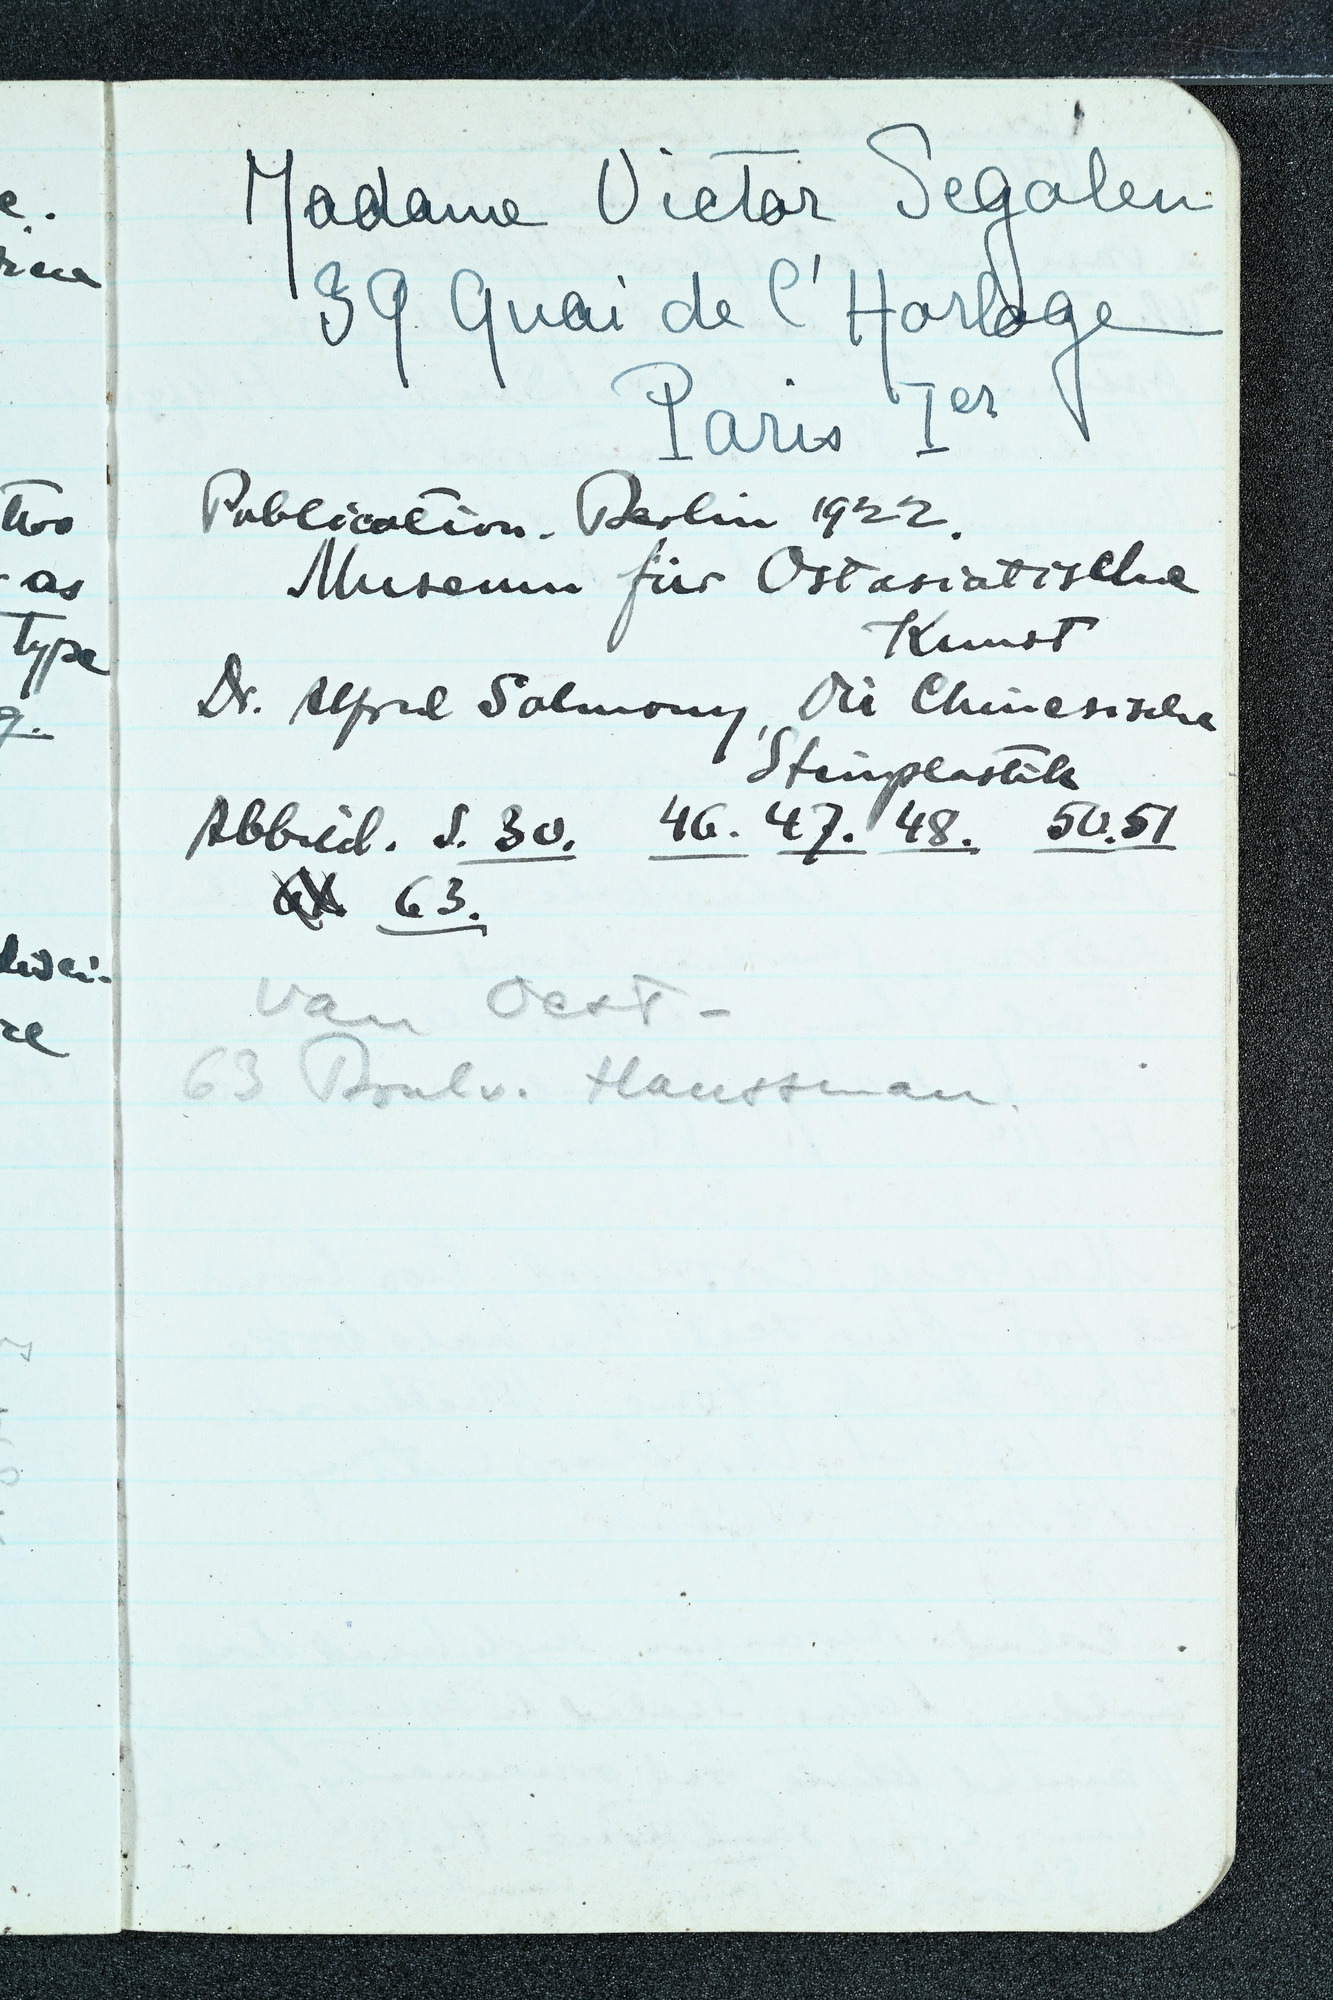 Madame Victor Segalen
39 Quai de l'Horloge
Paris Ier
Publication. Berlin 1922.
Museum für Ostasiatische
Kunst
Dr. Alfred Salmony, Die Chinesische
Steinplastik
Abbild. S. 30. 46. 47. 48. 50.51
63.
Van Oest -
63 Boulv. Haussman.
two
as
type